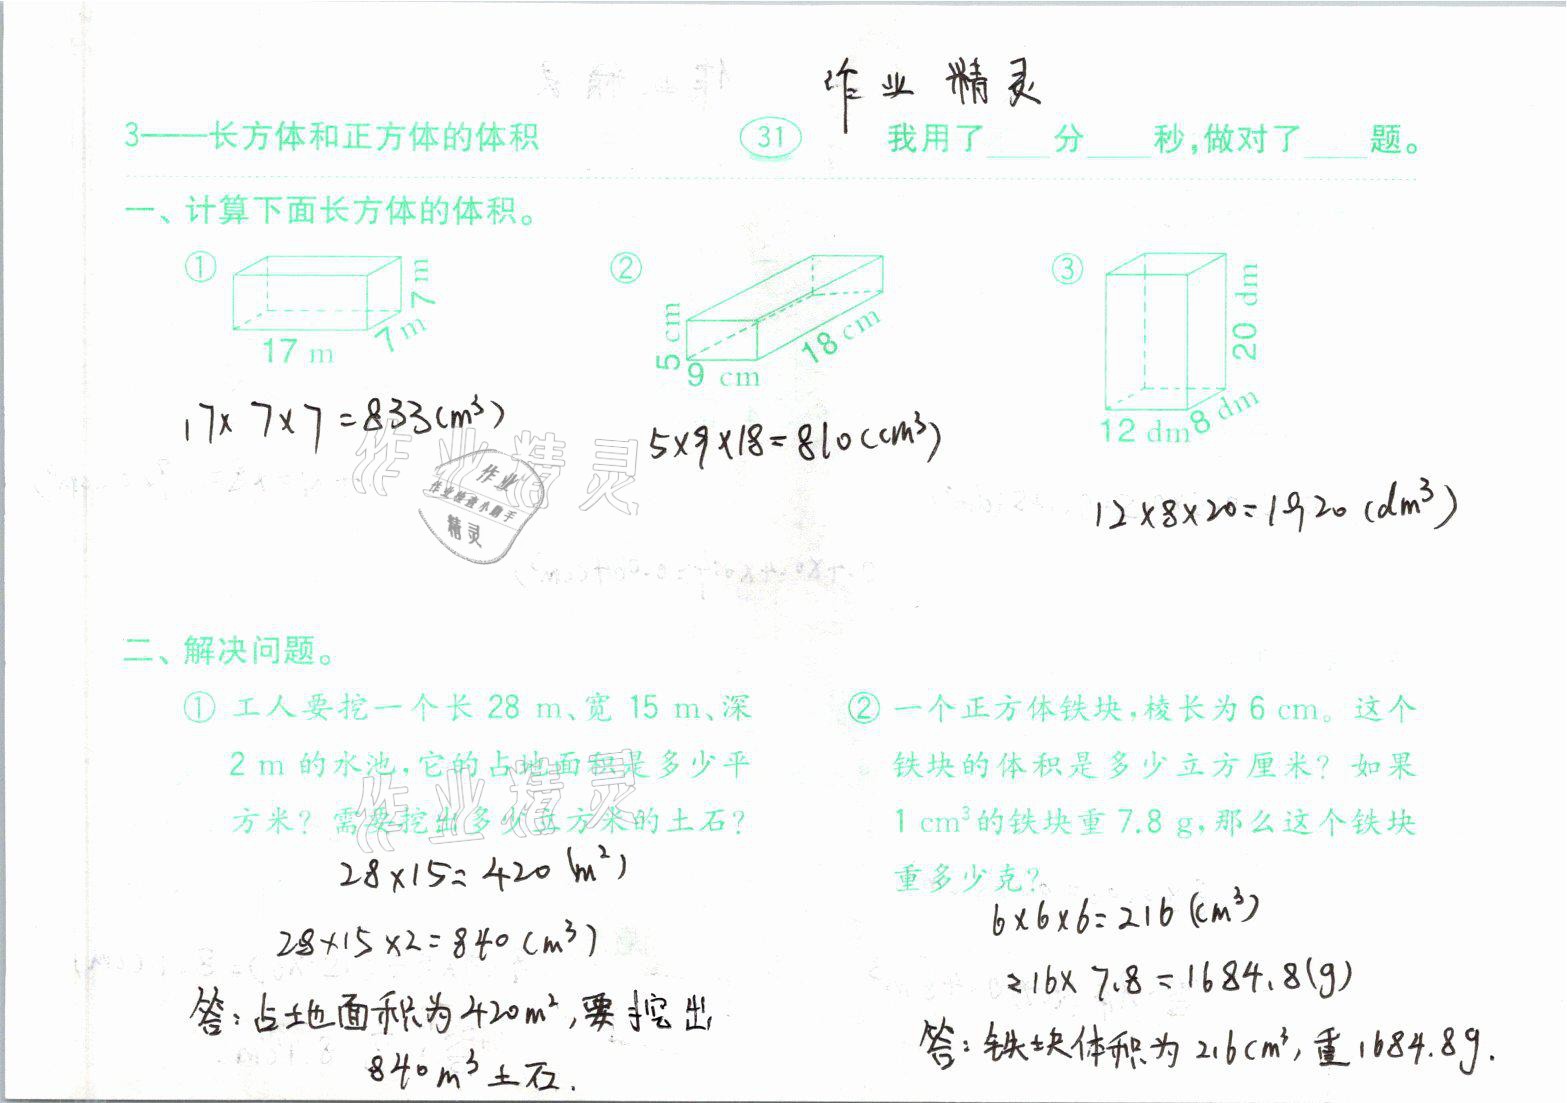 作业精灵
3——长方体和正方体的体积 31 我用了____分____秒,做对了____题。
一、计算下面长方体的体积。
① 17 m 7 m 7 m
② 5 cm 9 cm 18 cm
③ 12 dm 8 dm 20 dm
17×7×7=833(m³)
5×9×18=810(cm³)
12×8×20=1920(dm³)
作业精灵
作业
作业检查小助手
精灵
二、解决问题。
① 工人要挖一个长 28 m、宽 15 m、深
2 m 的水池,它的占地面积是多少平
方米? 需要挖出多少立方米的土石?
作业精灵
28×15=420(m²)
28×15×2=840(m³)
答:占地面积为420m²,要挖出
840m³土石.
② 一个正方体铁块,棱长为 6 cm。这个
铁块的体积是多少立方厘米? 如果
1 cm³的铁块重 7.8 g,那么这个铁块
重多少克?
6×6×6=216(cm³)
216×7.8=1684.8(g)
答:铁块体积为216cm³,重1684.8g.